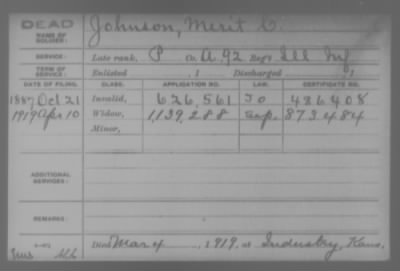 DEAD
NAME OF SOLDIER: Johnson, Merit C.
SERVICE: Late rank, P Co. A. 92 Reg't Ill Inf
TERM OF SERVICE: Enlisted , 1 Discharged , 1
DATE OF FILING. CLASS. APPLICATION NO. LAW. CERTIFICATE NO.
1887 Oct 21 Invalid, 626,561 486408
1919 Apr 10 Widow, 1139,288 873484
Minor,
ADDITIONAL SERVICES:
REMARKS:
Died Mar 4 , 1919, at Industry, Kans.